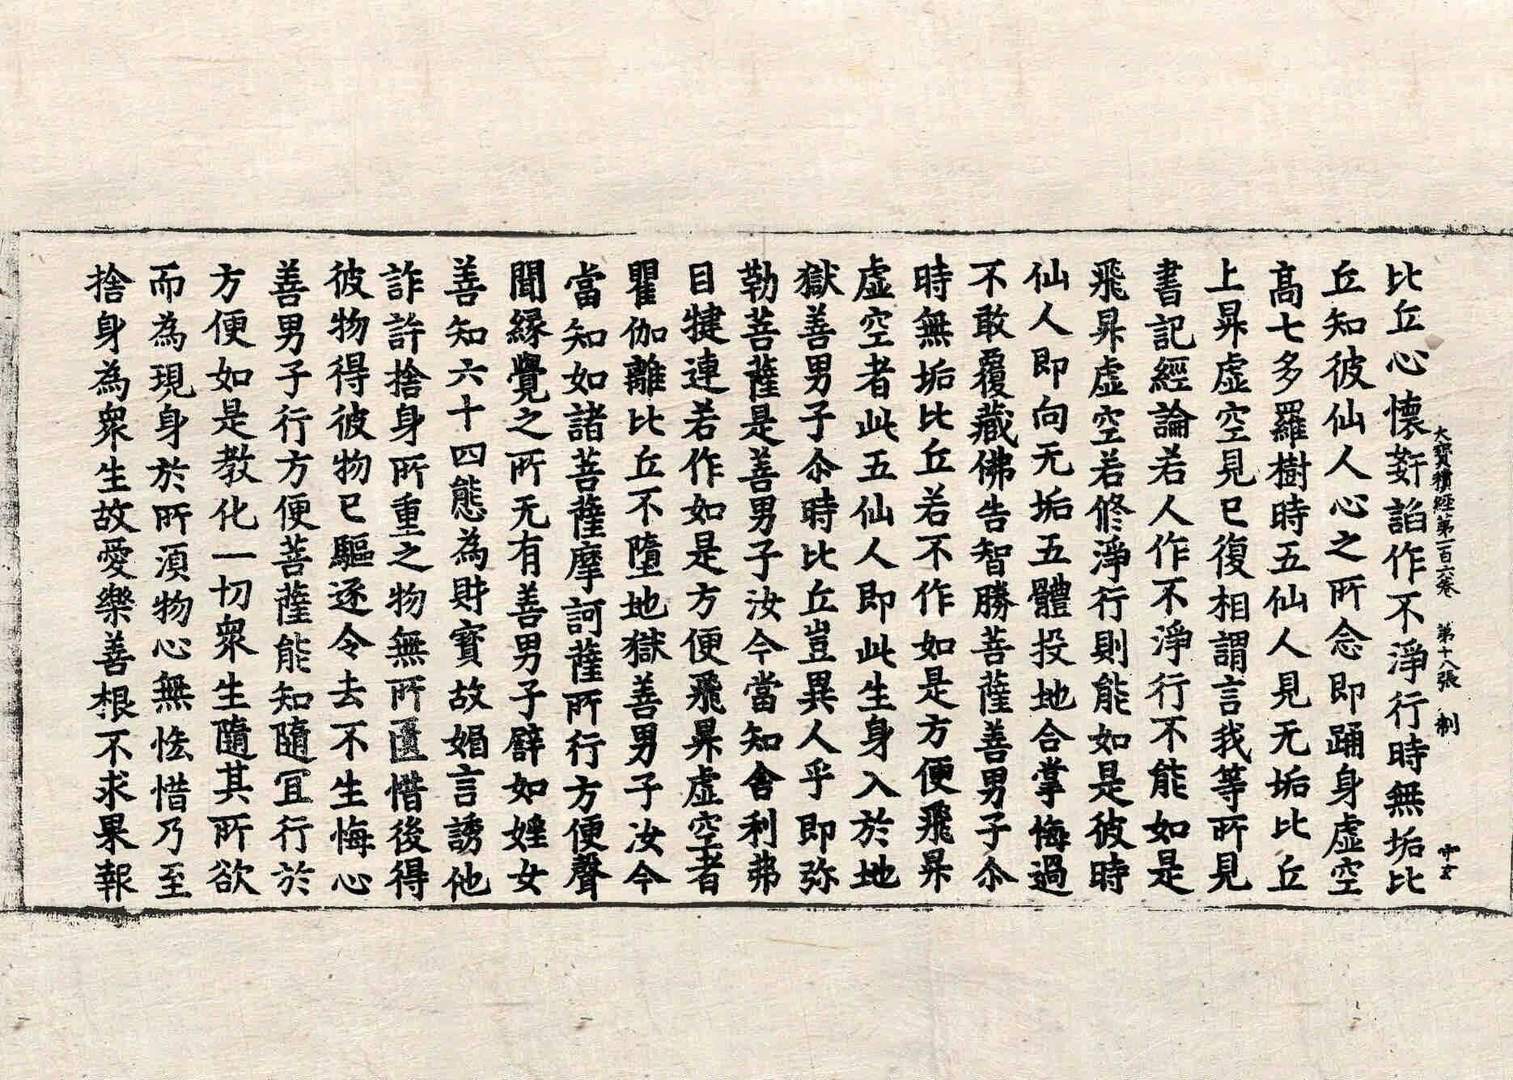 大寶積經第一百六卷 第十八張 制
比丘心懷姧諂作不淨行時無垢比
丘知彼仙人心之所念即踊身虛空
高七多羅樹時五仙人見无垢比丘
上昇虛空見已復相謂言我等所見
書記經論若人作不淨行不能如是
飛昇虛空若修淨行則能如是彼時
仙人即向无垢五體投地合掌悔過
不敢覆藏佛告智勝菩薩善男子尒
時無垢比丘若不作如是方便飛昇
虛空者此五仙人即此生身入於地
獄善男子尒時比丘豈異人乎即弥
勒菩薩是善男子汝今當知舍利弗
目揵連若作如是方便飛昇虛空者
瞿伽離比丘不墮地獄善男子汝今
當知如諸菩薩摩訶薩所行方便聲
聞緣覺之所无有善男子辟如婬女
善知六十四態為財寳故媚言誘他
詐許捨身所重之物無所匱惜後得
彼物得彼物已驅逐令去不生悔心
善男子行方便菩薩能知隨冝行於
方便如是教化一切衆生隨其所欲
而為現身於所湏物心無恡惜乃至
捨身為衆生故愛樂善根不求果報